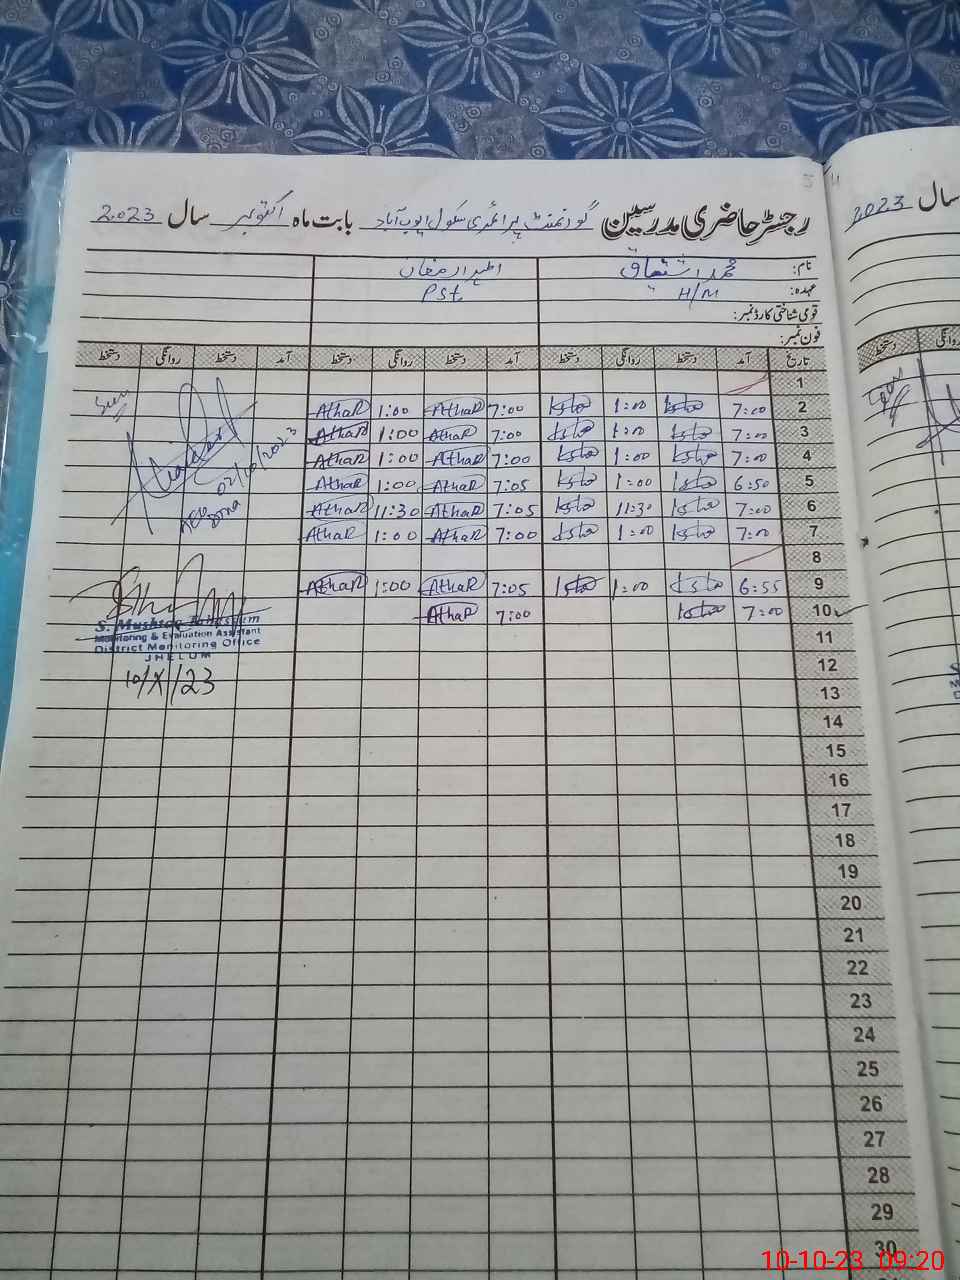 رجسٹر حاضری مدرسین گورنمنٹ پرائمری سکول ایوب آباد بابت ماہ اکتوبر سال 2023
نام: محمد اشتیاق اطہر ارمغان
عہدہ: H/M Pst
قومی شناختی کارڈ نمبر:
فون نمبر:
تاریخ آمد دستخط روانگی دستخط آمد دستخط روانگی دستخط آمد دستخط روانگی دستخط
1
2 7:00 1:00 7:00 AthaR 1:00 AthaR
3 7:00 1:00 7:00 AthaR 1:00 AthaR
4 7:00 1:00 7:00 AthaR 1:00 AthaR
5 6:50 1:00 7:05 AthaR 1:00 AthaR
6 7:00 11:30 7:05 AthaR 11:30 AthaR
7 7:00 1:00 7:00 AthaR 1:00 AthaR
8
9 6:55 1:00 7:05 AthaR 1:00 AthaR
10 7:00 7:00 AthaR
11
12
13
14
15
16
17
18
19
20
21
22
23
24
25
26
27
28
29
30
02/10/2023
AEO
S. Mushtaq
Monitoring & Evaluation Assistant
District Monitoring Office
JHELUM
10/X/23
سال 2023
روانگی دستخط
10-10-23 09:20